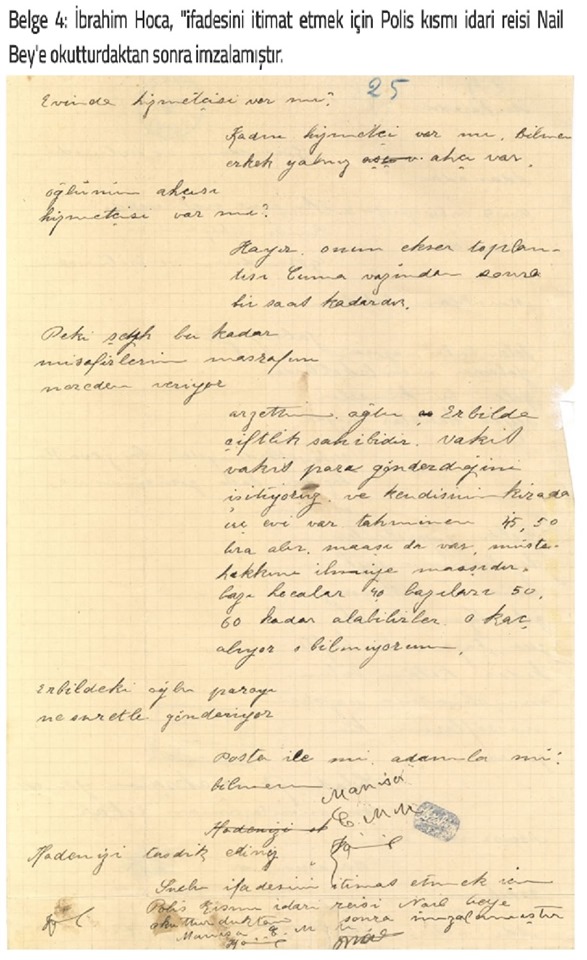 Belge 4: İbrahim Hoca, "ifadesini itimat etmek için Polis kısmı idari reisi Nail
Bey'e okutturdaktan sonra imzalamıştır.
25
Evinde hizmetçisi var mı?
Kadın hizmetçi var mı, bilmem
erkek yalnız ahçı var.
oğlunun ahçısı
hizmetçisi var mı?
Hayır, onun ekser toplan-
tısı Cuma vağzından sonra
bir saat kadardır.
Peki şeyh bu kadar
misafirlerin masrafını
nereden veriyor
arzettim. oğlu Erbilde
çiftlik sahibidir. vakit
vakit para gönderdiğini
işitiyoruz ve kendisinin kirada
üç evi var tahminen 45, 50
lira alır, maaşı da var, müsta-
hakkını ilmiye maaşıdır.
bazı hocalar 40 bazıları 50,
60 kadar alabilirler. o kaç
alıyor bilmiyorum.
Erbildeki oğlu parayı
ne suretle gönderiyor
Posta ile mi, adamla mı?
bilmem
Manisa
C. M. M.
tasdik ediniz
ifadesini itimat etmek için
Polis kısmı idari reisi Nail beye
okutturduktan sonra imzalamıştır
Manisa